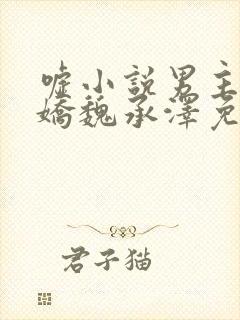 嘘小說男主
嬌魏承澤免
君子猫